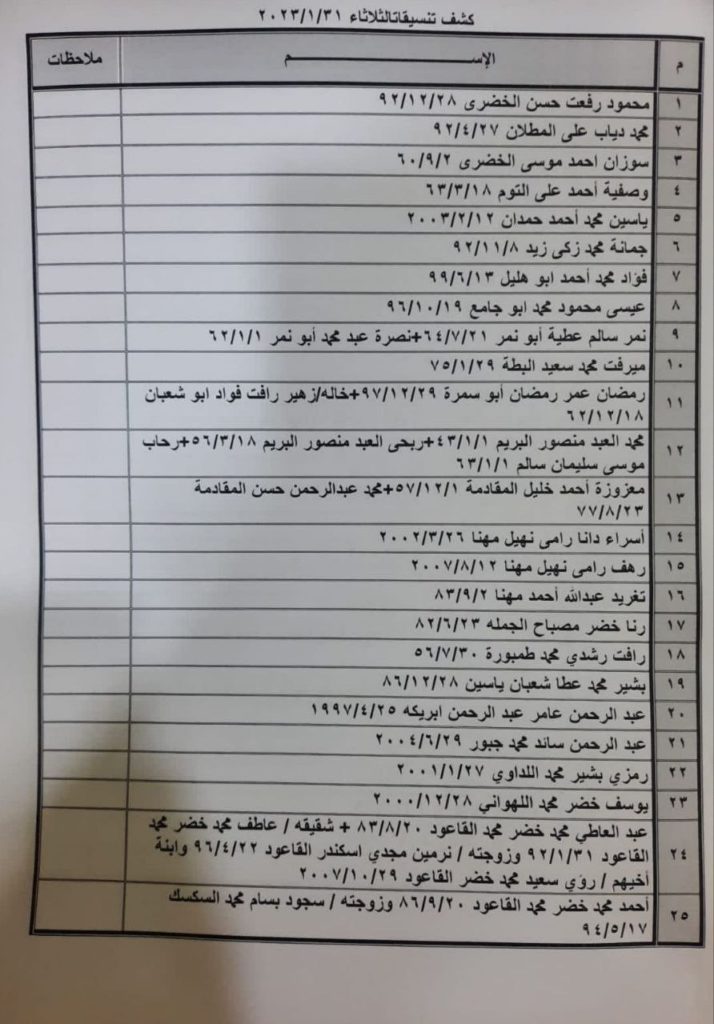 كشف تنسيقاتالثلاثاء ٢٠٢٣/١/٣١
م الإســــــــم ملاحظات
١ محمود رفعت حسن الخضرى ٩٢/١٢/٢٨
٢ محمد دياب على المطلان ٩٢/٤/٢٧
٣ سوزان احمد موسى الخضرى ٦٠/٩/٢
٤ وصفية أحمد على التوم ٦٣/٣/١٨
٥ ياسين محمد أحمد حمدان ٢٠٠٣/٢/١٢
٦ جمانة محمد زكى زيد ٩٢/١١/٨
٧ فؤاد محمد أحمد ابو هليل ٩٩/٦/١٣
٨ عيسى محمود محمد ابو جامع ٩٦/١٠/١٩
٩ نمر سالم عطية أبو نمر ٦٤/٧/٢١+نصرة عبد محمد أبو نمر ٦٢/١/١
١٠ ميرفت محمد سعيد البطة ٧٥/١/٢٩
١١ رمضان عمر رمضان أبو سمرة ٩٧/١٢/٢٩+خاله/زهير رافت فواد ابو شعبان
٦٢/١٢/١٨
١٢ محمد العبد منصور البريم ٤٣/١/١+ربحى العبد منصور البريم ٥٦/٣/١٨+رحاب
موسى سليمان سالم ٦٣/١/١
١٣ معزوزة أحمد خليل المقادمة ٥٧/١٢/١+محمد عبدالرحمن حسن المقادمة
٧٧/٨/٢٣
١٤ أسراء دانا رامى نهيل مهنا ٢٠٠٢/٣/٢٦
١٥ رهف رامى نهيل مهنا ٢٠٠٧/٨/١٢
١٦ تغريد عبدالله أحمد مهنا ٨٣/٩/٢
١٧ رنا خضر مصباح الجمله ٨٢/٦/٢٣
١٨ رافت رشدي محمد طمبورة ٥٦/٧/٣٠
١٩ بشير محمد عطا شعبان ياسين ٨٦/١٢/٢٨
٢٠ عبد الرحمن عامر عبد الرحمن ابريكه ١٩٩٧/٤/٢٥
٢١ عبد الرحمن سائد محمد جبور ٢٠٠٤/٦/٢٩
٢٢ رمزي بشير محمد اللداوي ٢٠٠١/١/٢٧
٢٣ يوسف خضر محمد اللهواني ٢٠٠٠/١٢/٢٨
٢٤ عبد العاطي محمد خضر محمد القاعود ٨٣/٨/٢٠ + شقيقه / عاطف محمد خضر محمد
القاعود ٩٢/١/٣١ وزوجته / نرمين مجدي اسكندر القاعود ٩٦/٤/٢٢ وابنة
أخيهم / رؤي سعيد محمد خضر القاعود ٢٠٠٧/١٠/٢٩
٢٥ أحمد محمد خضر محمد القاعود ٨٦/٩/٢٠ وزوجته / سجود بسام محمد السكسك
٩٤/٥/١٧